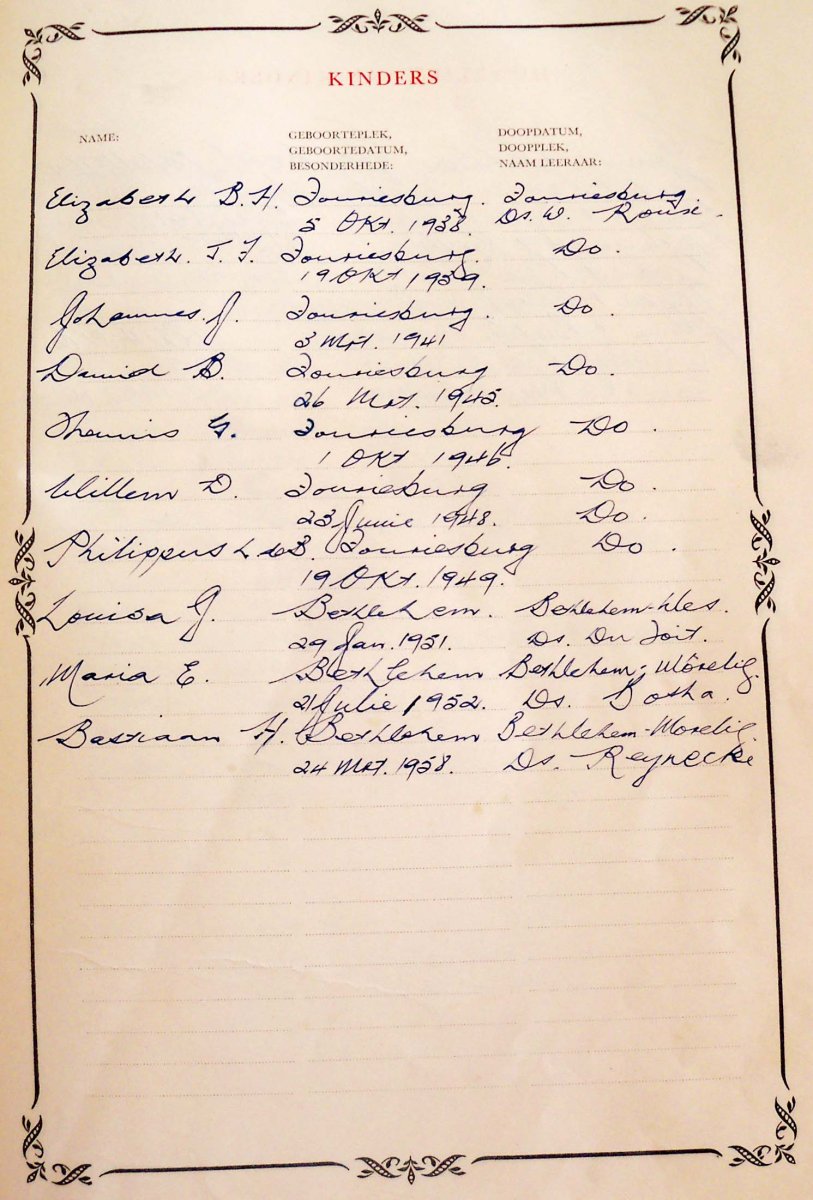 KINDERS
NAME: GEBOORTEPLEK, DOOPDATUM,
GEBOORTEDATUM, DOOPPLEK,
BESONDERHEDE: NAAM LEERAAR:
Elizabeth B. H. Fouriesburg. Fouriesburg.
5 OKt. 1938 Ds. W.
Elizabeth. J. F. Fouriesburg. Do.
19 OKt 1939.
Johannes. J. Fouriesburg. Do.
3 Mrt. 1941
Dawid B. Fouriesburg Do.
26 Mrt. 1945.
Theunis G. Fouriesburg Do.
1 OKt 1946.
Willem D. Fouriesburg Do.
23 Junie 1948. Do.
Philippus L de B. Fouriesburg Do.
19 OKt. 1949.
Louisa J. Bethlehem. Bethlehem-Wes.
29 Jan. 1951. Ds. Du Toit.
Maria E. Bethlehem Bethlehem-Môrelig.
21 Julie 1952. Ds. Botha.
Bastiaan H. Bethlehem Bethlehem-Morelig.
24 Mrt. 1958. Ds. Reynecke